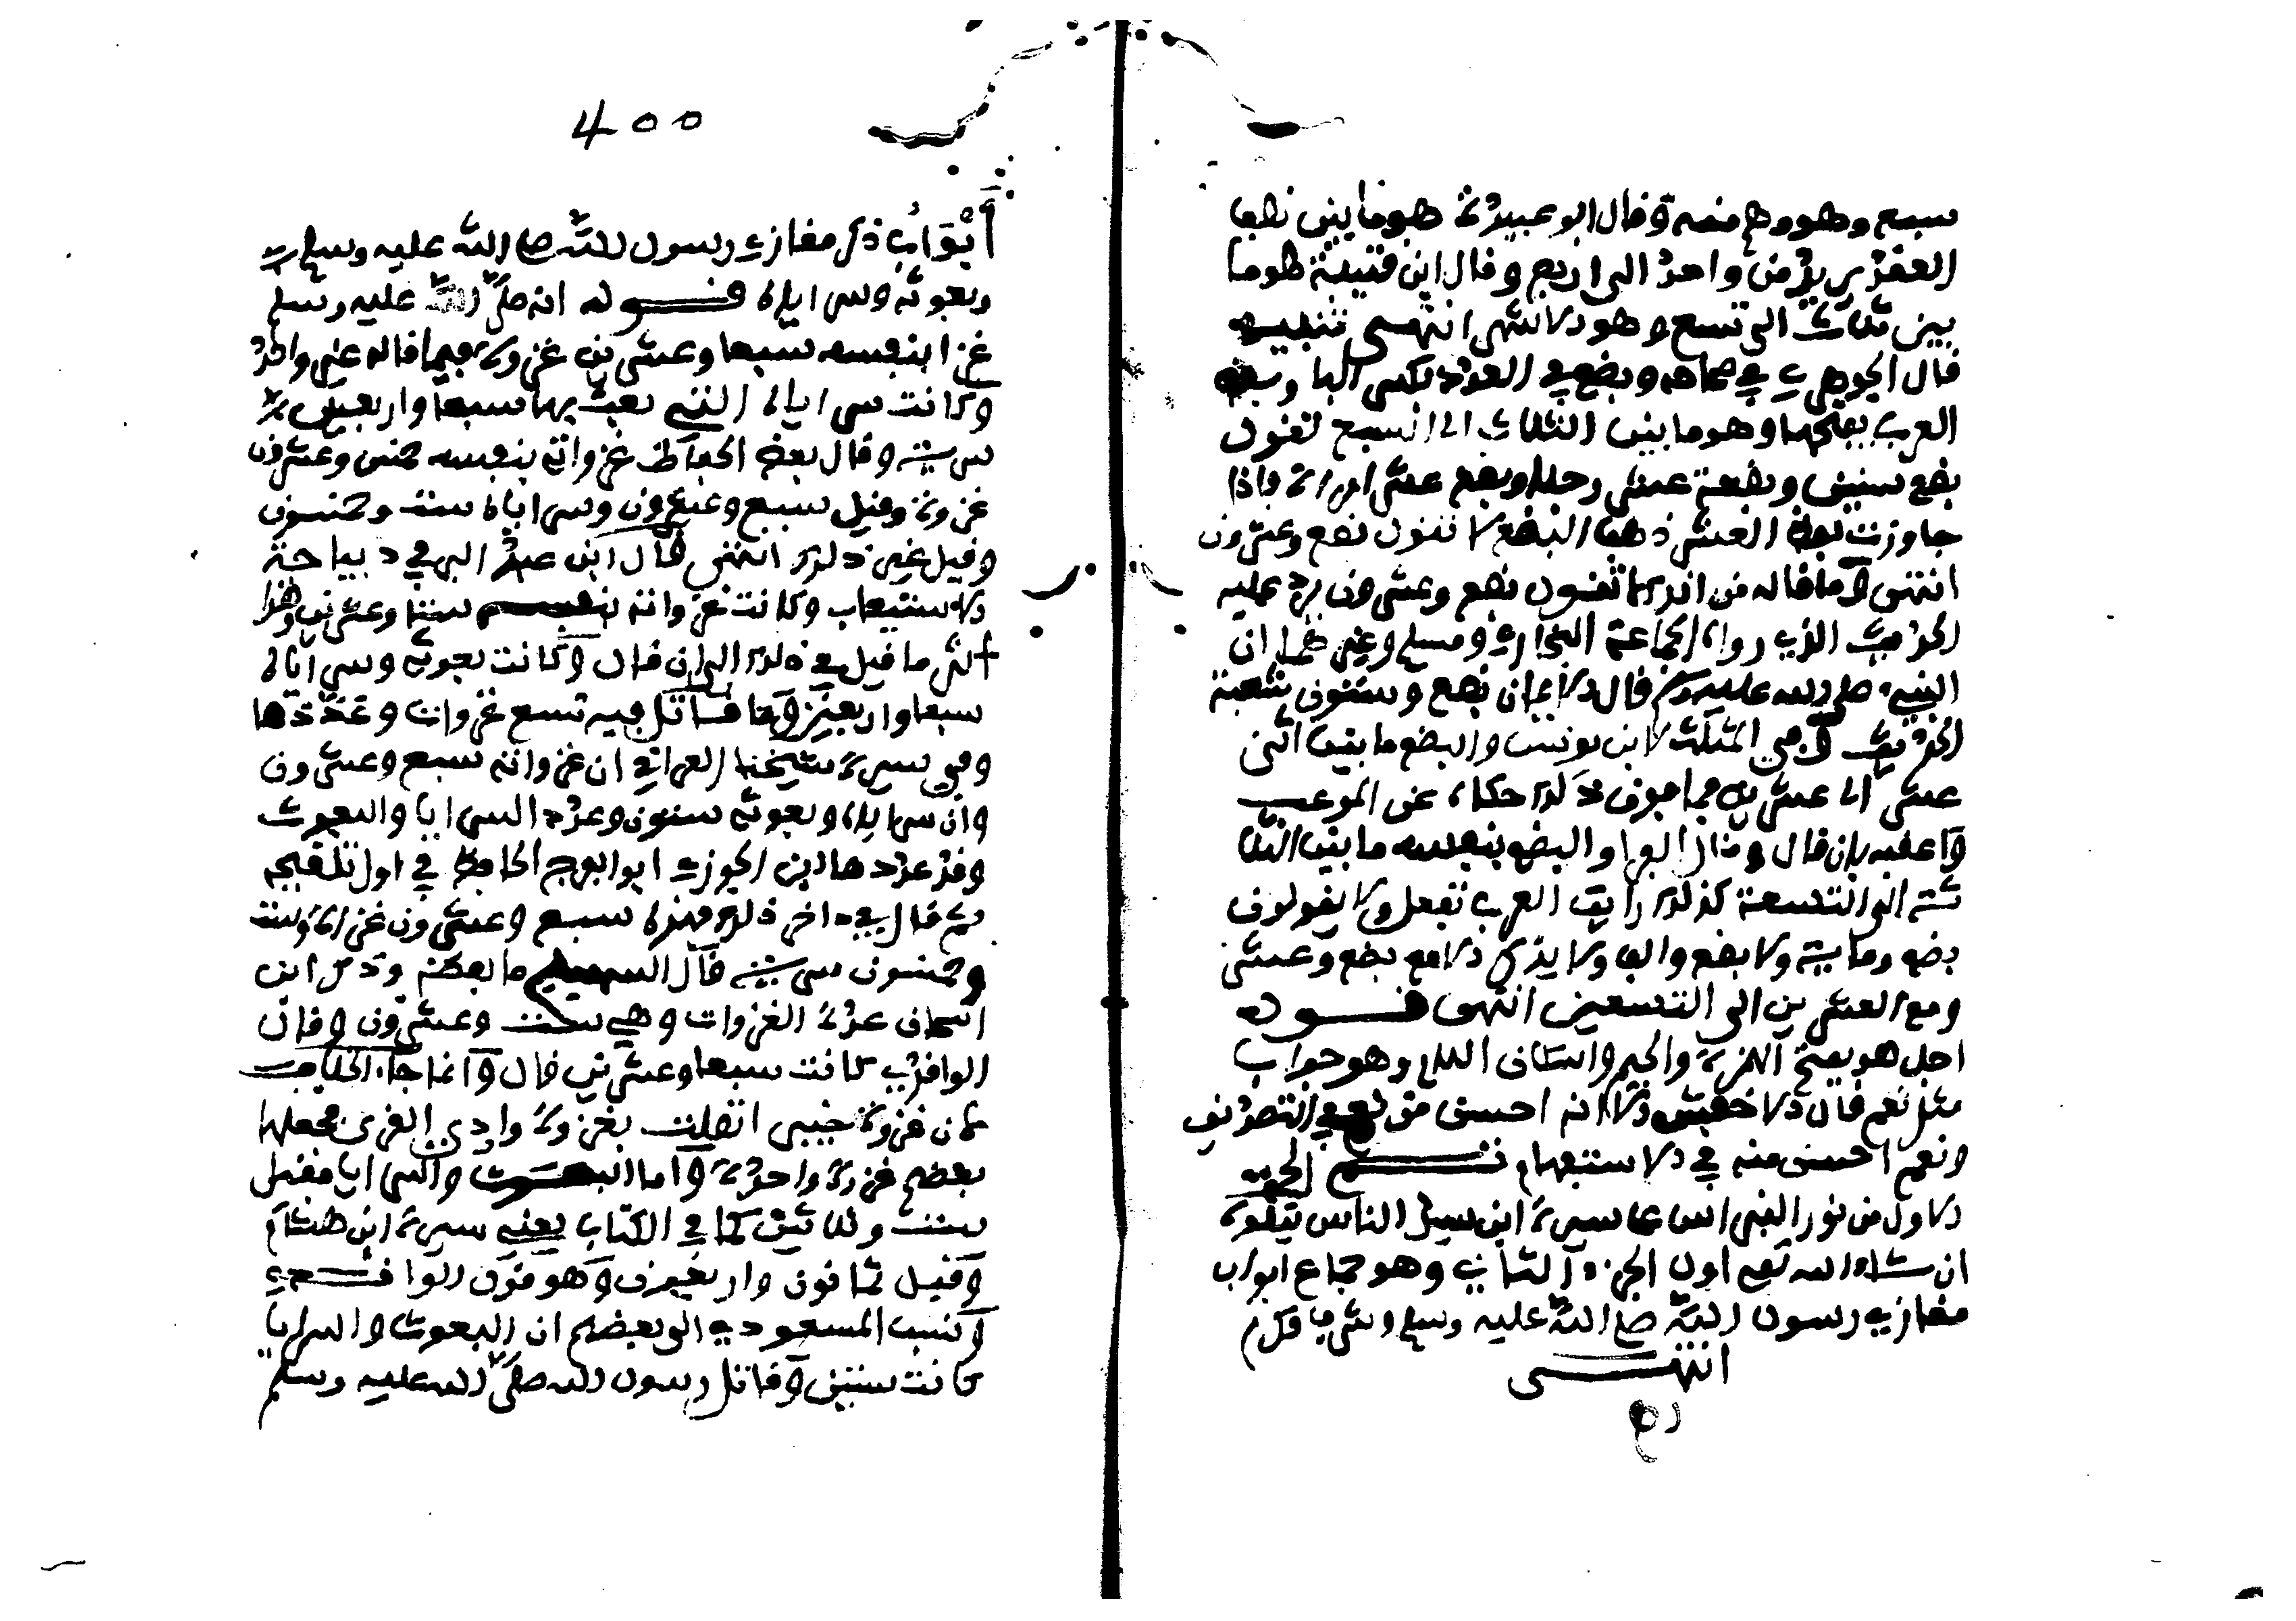 سبع وهو وهم منه وقال ابو عبيدة هو ما بين نصف
العقد يريد من واحد الى اربع وقال ابن قتيبة هو ما
بين ثلاث الى تسع وهو الاشهر انتهى تنبيه
قال الجوهري في صحاحه وبضع في العدد بكسر الباء وبعض
العرب يفتحها وهو ما بين الثلاث الى التسع تقول
بضع سنين وبضعة عشر رجلا وبضع عشرة امراة فاذا
جاوزت لفظ العشر ذهب البضع لا تقول بضع وعشرون
انتهى وما قاله من انك لا تقول بضع وعشرون يرد عليه
الحديث الذي رواه الجماعة البخاري ومسلم وغيرهما ان
النبي صلى الله عليه وسلم قال الايمان بضع وستون شعبة
الحديث وفي المثلث لابن يونس والبضع ما بين اثني
عشر الى عشرين فما فوق ذلك حكاه عن الموعب
واعقبه بان قال وقال الفراء والبضع بنفسه ما بين الثلا
ثة الى التسعة كذلك رايت العرب تفعل ولا يقولون
بضع ومائة ولا بضع والف ولا يذكر الا مع بضع وعشر
ومع العشرين الى التسعين انتهى قوله
اجل هو بفتح الهمزة والجيم واسكان اللام وهو جواب
مثل نعم قال الاخفش الا انه احسن من نعم في التصديق
ونعم احسن منه في الاستفهام تم الجزء
الاول من نور النبراس على سيرة ابن سيد الناس يتلوه
ان شاء الله تعلى اول الجزء الثاني وهو جماع ابواب
مغازي رسول الله صلى الله عليه وسلم وشرف وكرم
انتهى
400
أبواب ذكر مغازي رسول الله صلى الله عليه وسلم
وبعوثه وسراياه قوله انه صلى الله عليه وسلم
غزا بنفسه سبعا وعشرين غزوة فيما قاله غير واحد
وكانت سراياه التي بعث بها سبعا واربعين
سرية وقال بعض الحفاظ غزواته بنفسه خمس وعشرون
غزوة وقيل سبع وعشرون وسراياه ست وخمسون
وقيل غير ذلك انتهى قال ابن عبد البر في ديباجة
الاستيعاب وكانت غزواته بنفسه ستا وعشرين وهذا
اكثر ما قيل في ذلك الى ان قال وكانت بعوثه وسراياه
سبعا واربعين وما قاتل فيه تسع غزوات وعددها
وفي سيرة شيخنا العراقي ان غزواته سبع وعشرون
وان سراياه وبعوثه ستون وعدد السرايا والبعوث
وقد عددها ابن الجوزي ابو الفرج الحافظ في اول تلقيحه
ثم قال في اخر ذلك فهذه سبع وعشرون غزاة وست
وخمسون سرية قال السهيلي ما لفظه وذكر ابن
اسحاق عدة الغزوات وهي ست وعشرون وقال
الواقدي كانت سبعا وعشرين قال وانما جاء الخلاف
لان غزوة خيبر اتصلت بغزوة وادي القرى فجعلها
بعضهم غزوة واحدة واما البعوث والسرايا فقيل
ست وثلاثين كما في الكتاب يعني سيرة ابن هشام
وقيل ثمانون واربعون وهو قول الواقدي
ونسب المسعودي الى بعضهم ان البعوث والسرايا
كانت ستين وقاتل رسول الله صلى الله عليه وسلم